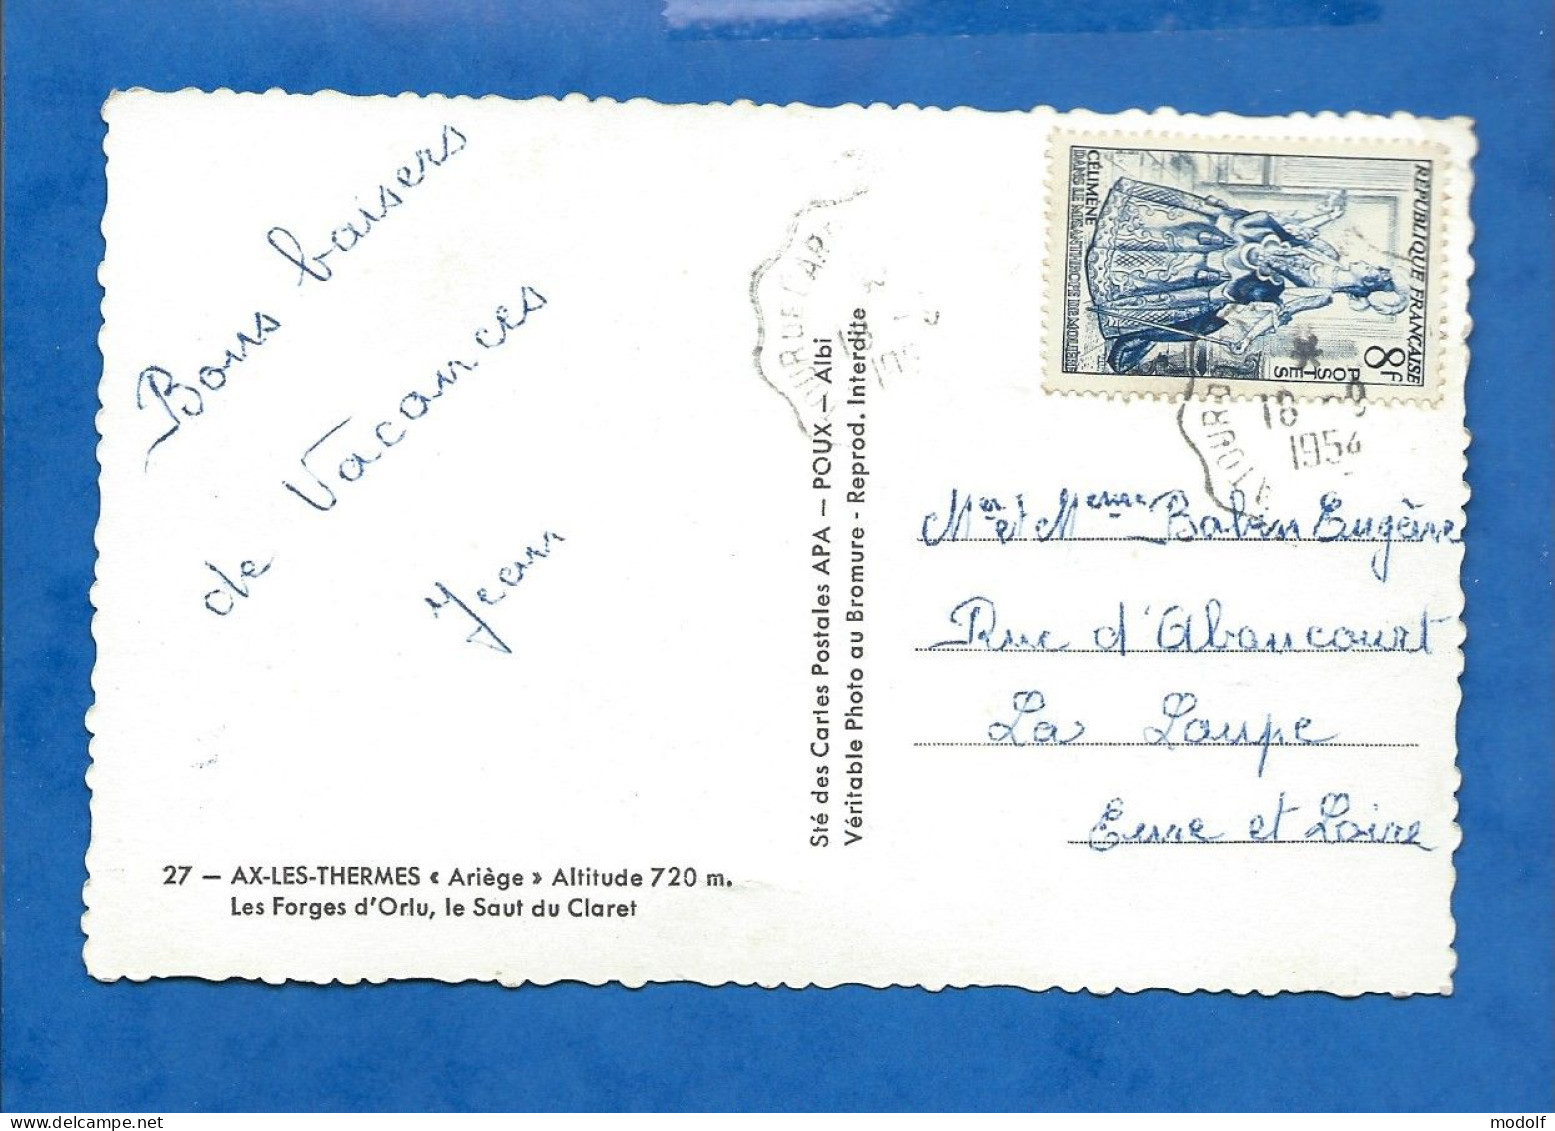 Bons baisers
de Vacances
Jean
27 — AX-LES-THERMES « Ariège » Altitude 720 m.
Les Forges d'Orlu, le Saut du Claret
Sté des Cartes Postales APA — POUX — Albi
Véritable Photo au Bromure - Reprod. Interdite
REPUBLIQUE FRANÇAISE
8F
POSTES
CÉLIMÈNE
DANS LE MISANTHROPE DE MOLIERE
18 - 9
1954
Mr et Meme Babin Eugène
Rue d'Abancourt
La Loupe
Eure et Loire
modolf